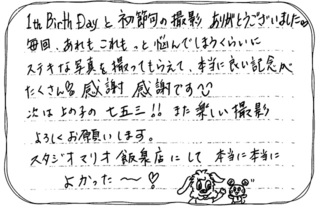 1th Birth Dayと初節句の撮影 ありがとうございました♡
毎回、あれもこれもっと悩んでしまうくらいに
ステキな写真を撮ってもらえて、本当に良い記念が
たくさん 感謝 感謝です
次は上の子の七五三!! また楽しい撮影
よろしくお願いします。
スタジオマリオ飯泉店にして 本当に本当に
よかった〜♡